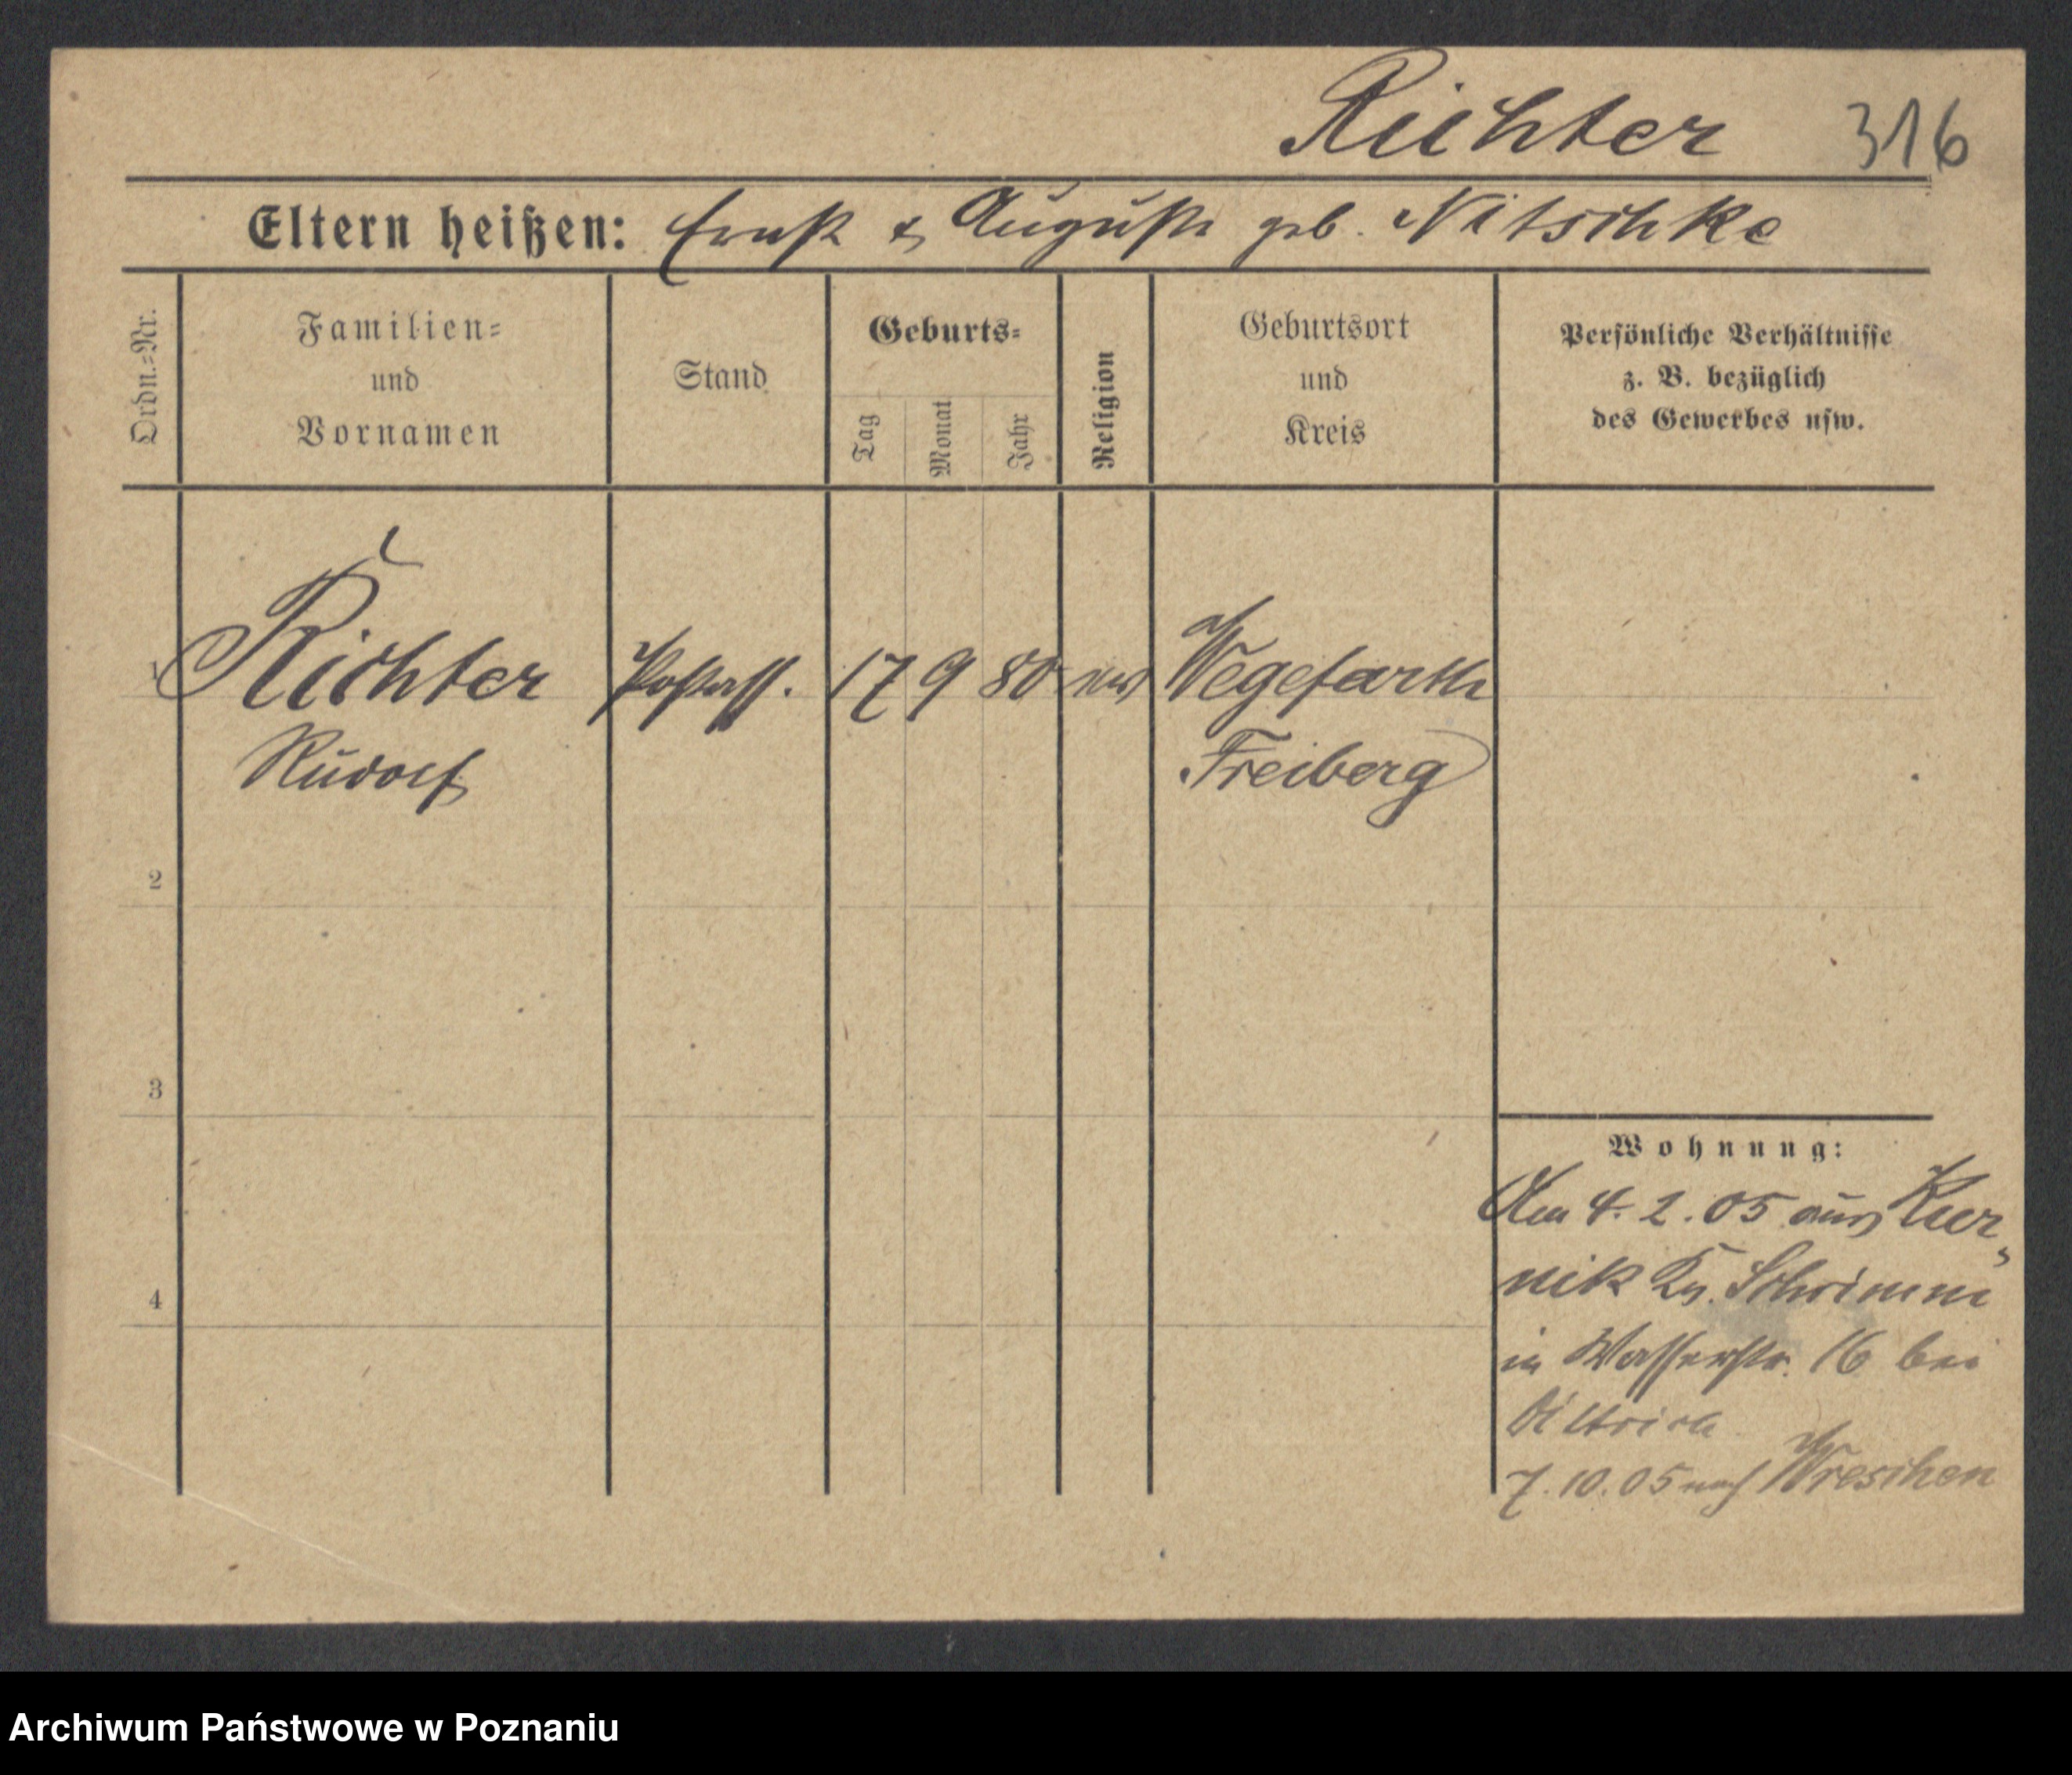 Richter 316
Eltern heißen: Ernst & Auguste geb. Nitschke
Ordn.=Nr.
Familien=
und
Vornamen
Stand
Geburts=
Tag
Monat
Jahr
Religion
Geburtsort
und
Kreis
Persönliche Verhältnisse
z. B. bezüglich
des Gewerbes usw.
1 Richter Postass. 17 9 80 Wegefarth
Rudolf Freiberg
2
3
4
Wohnung:
Am 4. 2. 05 aus Kur-
nik Kr. Schrimm
in Wasserstr. 16 bei
Dittrich
7. 10. 05 nach Wreschen
Archiwum Państwowe w Poznaniu